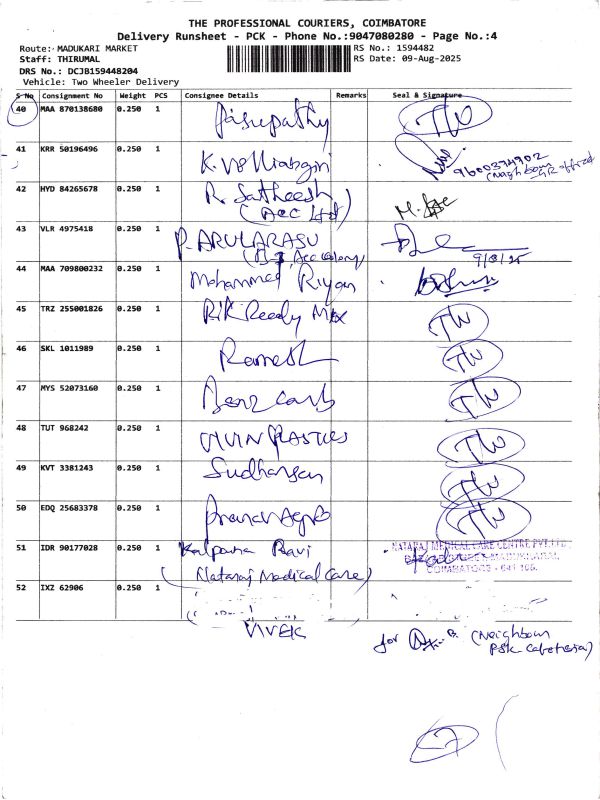 THE PROFESSIONAL COURIERS, COIMBATORE
Delivery Runsheet - PCK - Phone No.:9047080280 - Page No.:4
Route: MADUKARI MARKET RS No.: 1594482
Staff: THIRUMAL RS Date: 09-Aug-2025
DRS No.: DCJB159448204
Vehicle: Two Wheeler Delivery
S No Consignment No Weight PCS Consignee Details Remarks Seal & Signature
40 MAA 870138680 0.250 1 Pasupathy TW
41 KRR 50196496 0.250 1 9600394902
(Neighbour
42 HYD 84265678 0.250 1 R. Satheesh
(Acc Ltd)
43 VLR 4975418 0.250 1 P. ARULARASU
Acc colony) 9/8/25
44 MAA 709800232 0.250 1 Mohammed Riyan
45 TRZ 255001826 0.250 1 RK Ready Mix TW
46 SKL 1011989 0.250 1 Ramesh TW
47 MYS 52073160 0.250 1 Benz Cars TW
48 TUT 968242 0.250 1 VIVIN PLASTICS TW
49 KVT 3381243 0.250 1 Sudharsan TW
50 EDQ 25683378 0.250 1 TW
51 IDR 90177028 0.250 1 Kalpana Ravi NATARAJ MEDICAL CARE CENTRE PVT LTD
(Nataraj Medical Care) COIMBATORE - 641 105.
52 IXZ 62906 0.250 1
VIVEK for (Neighbour
PSK Cafeteria)